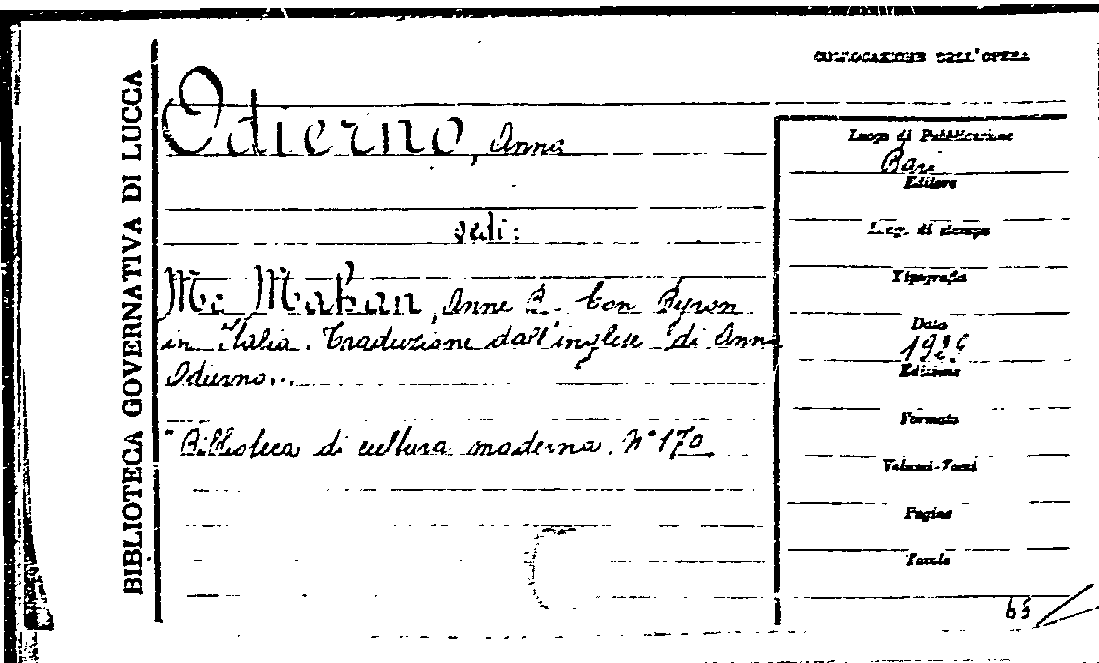 BIBLIOTECA GOVERNATIVA DI LUCCA
COLLOCAZIONE DELL'OPERA
Odierno, Anna
vedi:
Mc Mahan, Anne B. Con Byron
in Italia. Traduzione dall'inglese di Anna
Odierno...
"Biblioteca di cultura moderna. N° 170.
Luogo di Pubblicazione
Bari
Editore
Luog. di stampa
Tipografia
Data
1929
Edizione
Formato
Volumi-Tomi
Pagine
Tavole
63